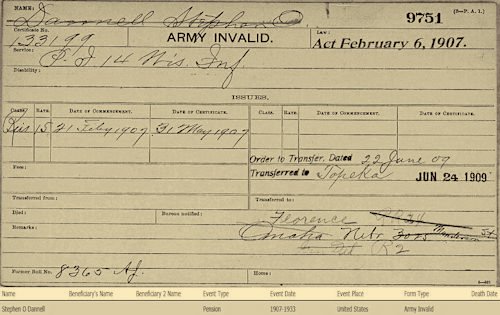 NAME: Dannell Stephen O 9751 (3—P. A. I.)
Certificate No. 133199 ARMY INVALID. LAW: Act February 6, 1907.
Service: 14 Wis. Inf.
Disability:
ISSUES.
CLASS. RATE. DATE OF COMMENCEMENT. DATE OF CERTIFICATE. CLASS. RATE. DATE OF COMMENCEMENT. DATE OF CERTIFICATE.
15 21 Feby 1907 31 May 1907
Order to Transfer, Dated 22 June 09
Fees: Transferred to Topeka JUN 24 1909
Transferred from: Transferred to:
Died: Bureau notified: Florence
Remarks: Omaha Nebr. St
R 2
Former Roll No. 8365 Home:
Name Beneficiary's Name Beneficiary 2 Name Event Type Event Date Event Place Form Type Death Date
Stephen O Dannell Pension 1907-1933 United States Army Invalid